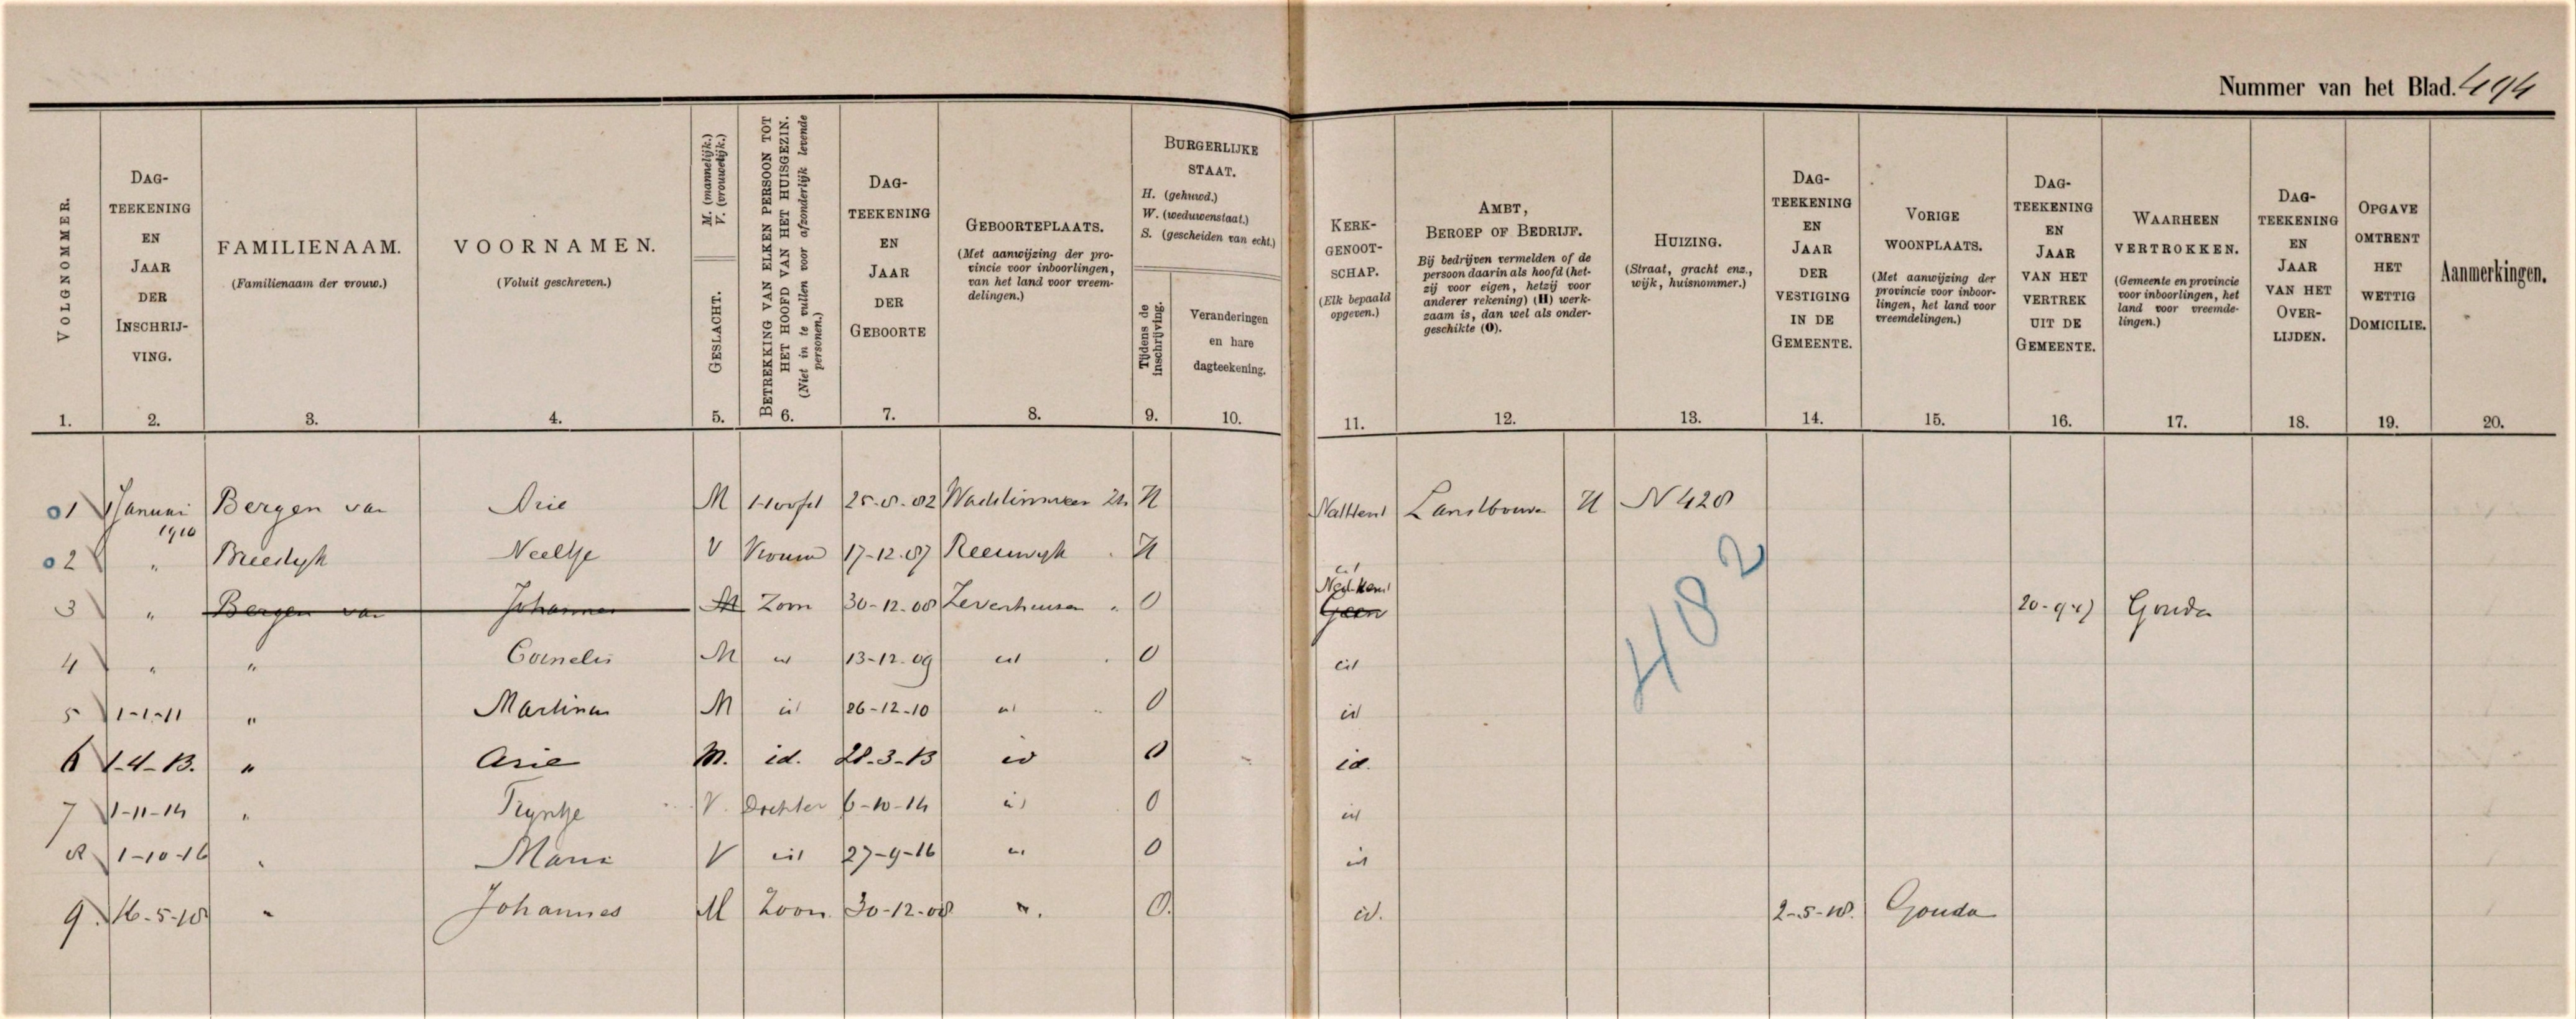 Nummer van het Blad. 494
VOLGNOMMER.
DAG-
TEEKENING
EN
JAAR
DER
INSCHRIJ-
VING.
FAMILIENAAM.
(Familienaam der vrouw.)
VOORNAMEN.
(Voluit geschreven.)
M. (mannelijk.)
V. (vrouwelijk.)
GESLACHT.
BETREKKING VAN ELKEN PERSOON TOT
HET HOOFD VAN HET HUISGEZIN.
(Niet in te vullen voor afzonderlijk levende
personen.)
DAG-
TEEKENING
EN
JAAR
DER
GEBOORTE
GEBOORTEPLAATS.
(Met aanwijzing der pro-
vincie voor inboorlingen,
van het land voor vreem-
delingen.)
BURGERLIJKE
STAAT.
H. (gehuwd.)
W. (weduwenstaat.)
S. (gescheiden van echt.)
Tijdens de
inschrijving.
Veranderingen
en hare
dagteekening.
KERK-
GENOOT-
SCHAP.
(Elk bepaald
opgeven.)
AMBT,
BEROEP OF BEDRIJF.
Bij bedrijven vermelden of de
persoon daarin als hoofd (het-
zij voor eigen, hetzij voor
anderer rekening) (H) werk-
zaam is, dan wel als onder-
geschikte (O).
HUIZING.
(Straat, gracht enz.,
wijk, huisnommer.)
DAG-
TEEKENING
EN
JAAR
DER
VESTIGING
IN DE
GEMEENTE.
VORIGE
WOONPLAATS.
(Met aanwijzing der
provincie voor inboor-
lingen, het land voor
vreemdelingen.)
DAG-
TEEKENING
EN
JAAR
VAN HET
VERTREK
UIT DE
GEMEENTE.
WAARHEEN
VERTROKKEN.
(Gemeente en provincie
voor inboorlingen, het
land voor vreemde-
lingen.)
DAG-
TEEKENING
EN
JAAR
VAN HET
OVER-
LIJDEN.
OPGAVE
OMTRENT
HET
WETTIG
DOMICILIE.
Aanmerkingen.
1. 2. 3. 4. 5. 6. 7. 8. 9. 10. 11. 12. 13. 14. 15. 16. 17. 18. 19. 20.
1 1 Januari Bergen van Arie M Hoofd 25-8-82 Waddinxveen Zh H Landbouwer H N 428
1910
2 " Breedijk Neeltje V Vrouw 17-12-87 Reeuwijk " H id
Ned. Herv
3 " Bergen van Johannes M Zoon 30-12-08 Zevenhuizen " O Geen 20-9-17 Gouda
482
4 " " Cornelis M id 13-12-09 id " O id
5 1-1-11 " Martinus M id 26-12-10 id " O id
6 1-4-13. " Arie M. id. 28-3-13 id O id.
7 1-11-14 " Trijntje V. Dochter 6-10-14 id O id
8 1-10-16 " Maria V id 27-9-16 " O id
9. 16-5-18 " Johannes M Zoon. 30-12-08 ". O. id. 2-5-18. Gouda